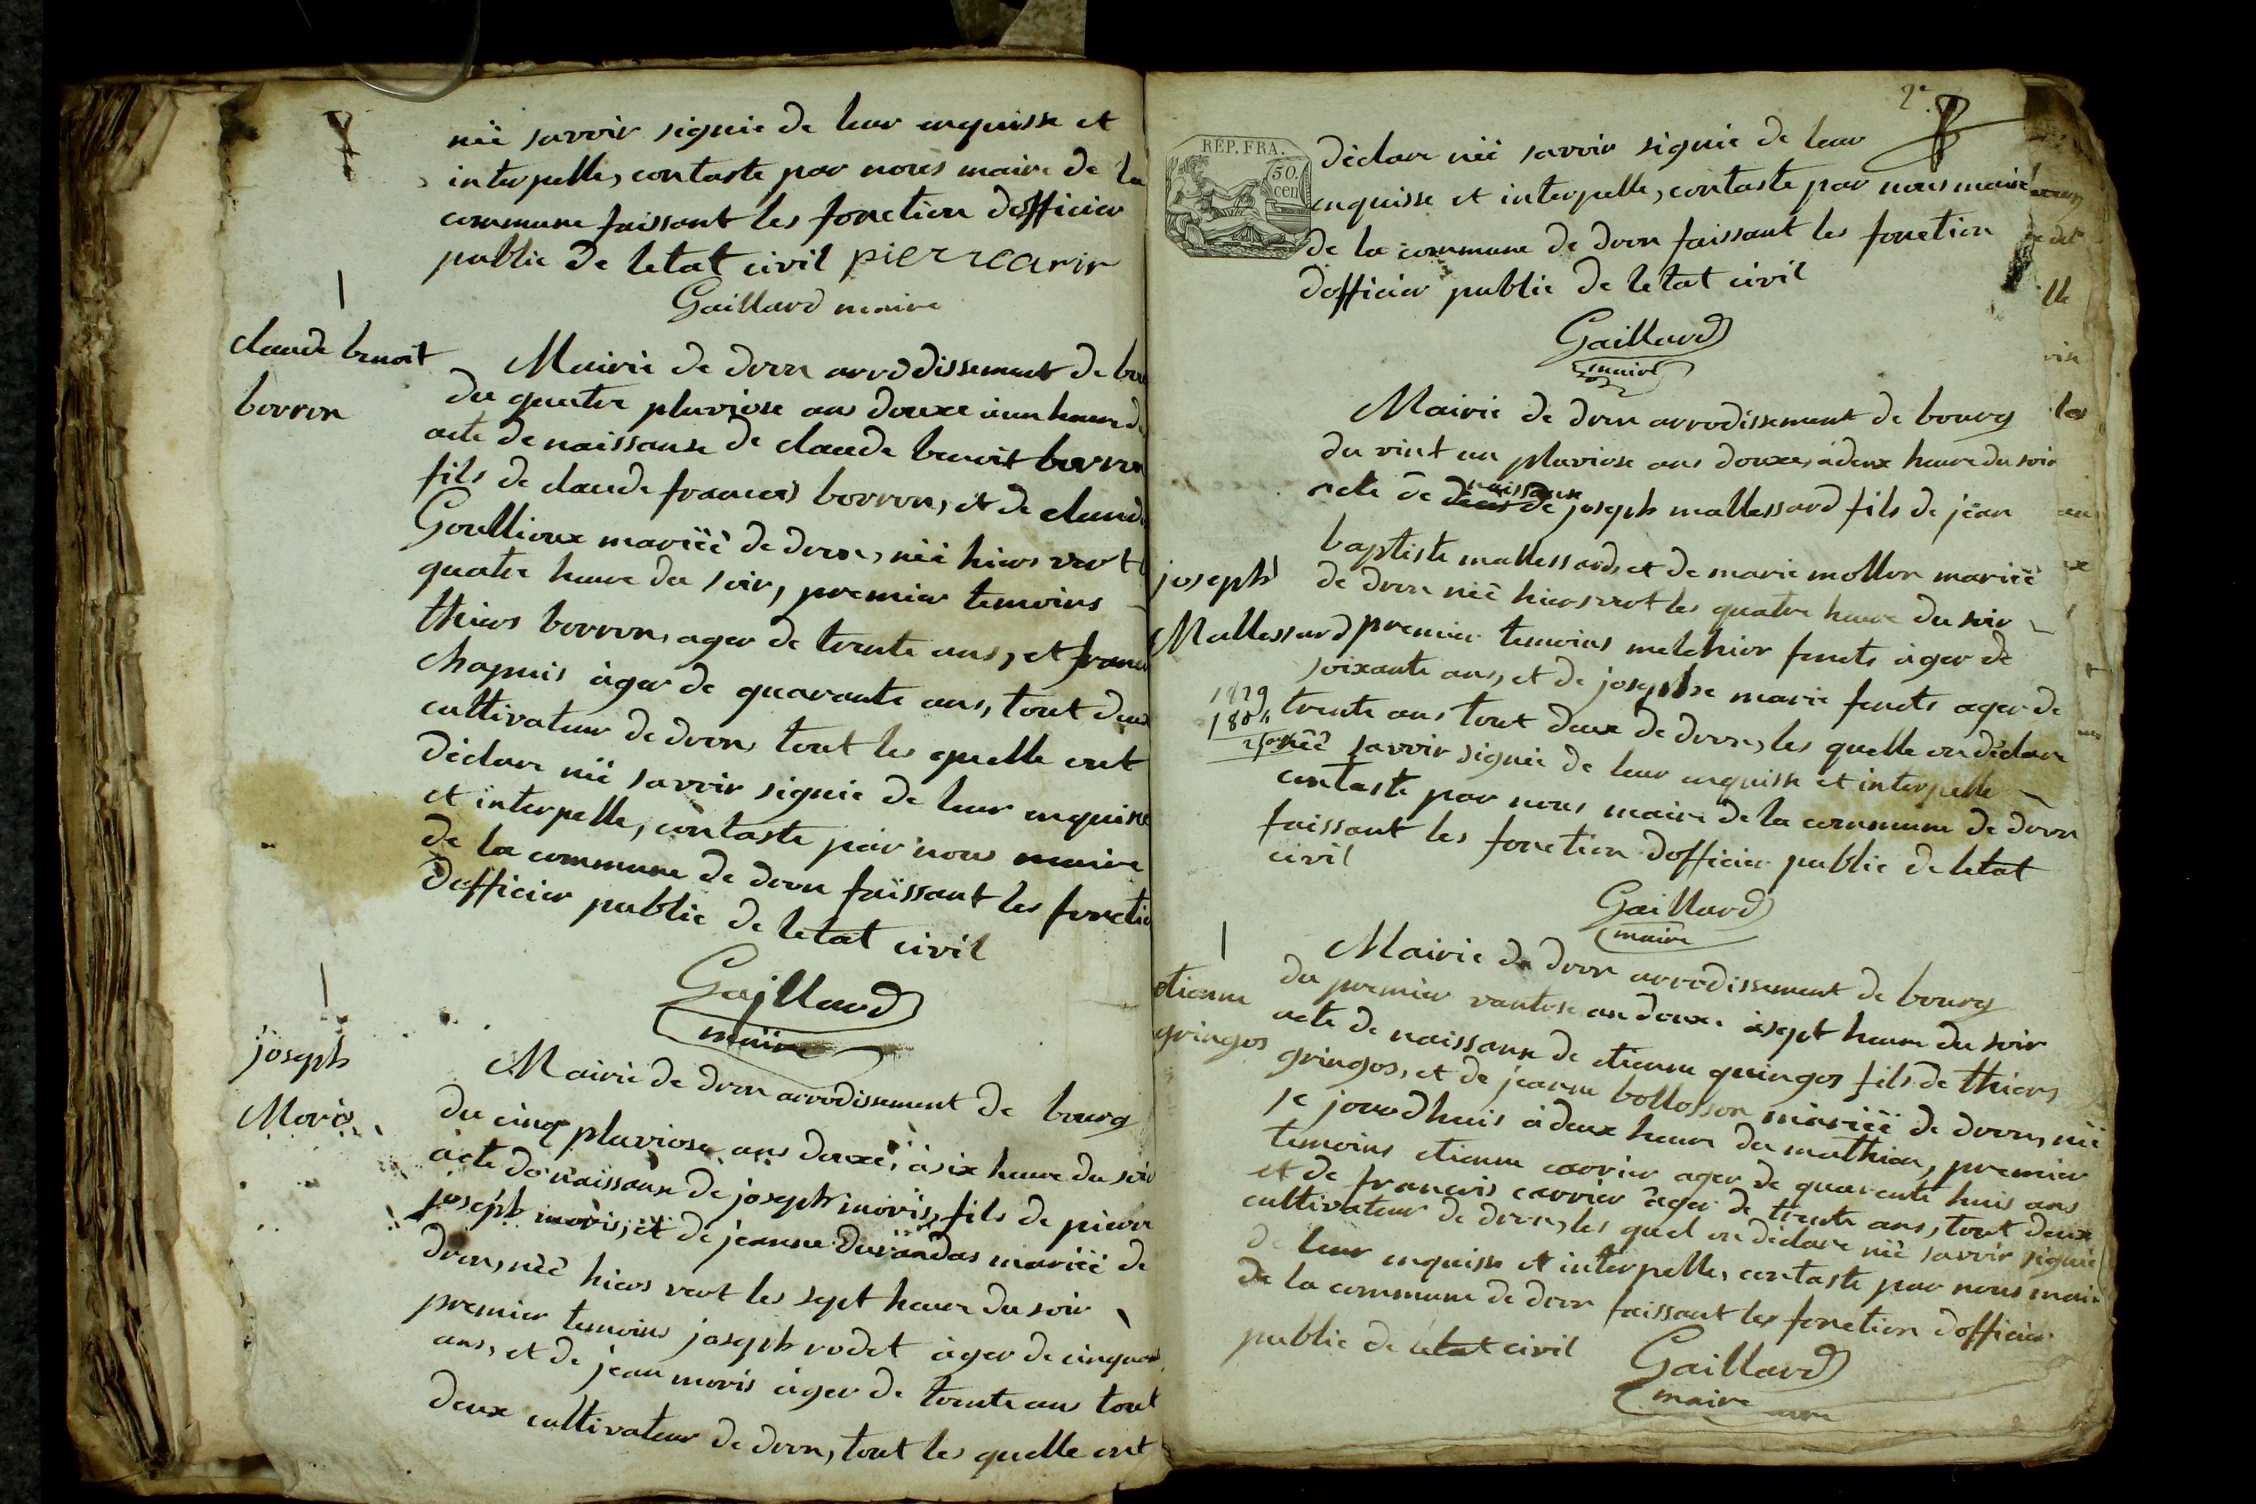 néé savoir signié de leur enquisse et
interpelle, contaste par nous maire de la
commune faissant les fonction dofficier
public de letat civil pierre carir
Gaillard maire
claude benoit
borron
Mairié de dron arrodissement de
du quatre pluviose ans douxe à un heure d
acte de naissanse de claude benoit borron
fils de claude francois borron, et de claud
Goullioux mariéé de dron, néé hiers vert l
quatre heure du soir, premier temoins
thiers borron, ager de trente ans, et
chapuis àger de quarante ans, tout deux
cultivateur de dron, tout les quelle ont
déclare néé savoir signié de leur enquisse
et interpelle, contaste par nous maire
de la commune de dron faissant les fonctio
dofficier public de letat civil
Gaillard
maire
joseph
Moris
Mairié de dron arrodissement de bourg
du cinq pluviose ans douxe, à six heure du soir
acte de naissanse de joseph moris, fils de pierre
joseph moris, et de jeanne durandas mariéé de
dron, néé hiers vert les sept heure du soir
premier temoins joseph rodet àger de cinquan
ans, et de jean moris àger de trente ans tout
deux cultivateur de dron, tout les quelle ont
2e.
REP. FRA.
50.
cen
déclare néé savoir signié de leur
enquisse et interpelle, contaste par nous maire
de la commune de dron faissant les fonction
dofficier public de letat civil
Gaillard
maire
Mairié de dron arrodissement de bourg
du vint un pluviose ans douxe, à deux heure du soir
acte de naissanse de joseph mallessard fils de jéan
baptiste mallessard, et de marie mollon mariéé
joseph
Mallessard
de dron néé hiers vert les quatre heure du soir
premier temoins melchior fenets àger de
soixante ans, et de josephe marie fenets ager de
1829
1804
25
trente ans tout deux de dron, les quelle on déclare
néé savoir signié de leur enquisse et interpelle
contaste par nous maire de la commune de dron
faissant les fonction dofficier public de letat
civil
Gaillard
maire
etienne
gringos
Mairie de dron arrodissement de bourg
du premier vantose an douxe à sept heure du soir
acte de naissanse de etienne guingos fils de thiers
gringos, et de jeanne bollosson mariéé de dron, néé
se jourdhuis à deux heure du mathien, premier
temoins etienne carrier ager de quarente huis ans
et de francois carrier àger de trente ans, tout deux
cultivateur de dron, les quel on déclare néé savoir signié
de leur enquisse et interpelle, contaste par nous mair
de la commune de dron faissant les fonction dofficier
public de letat civil
Gaillard
maire